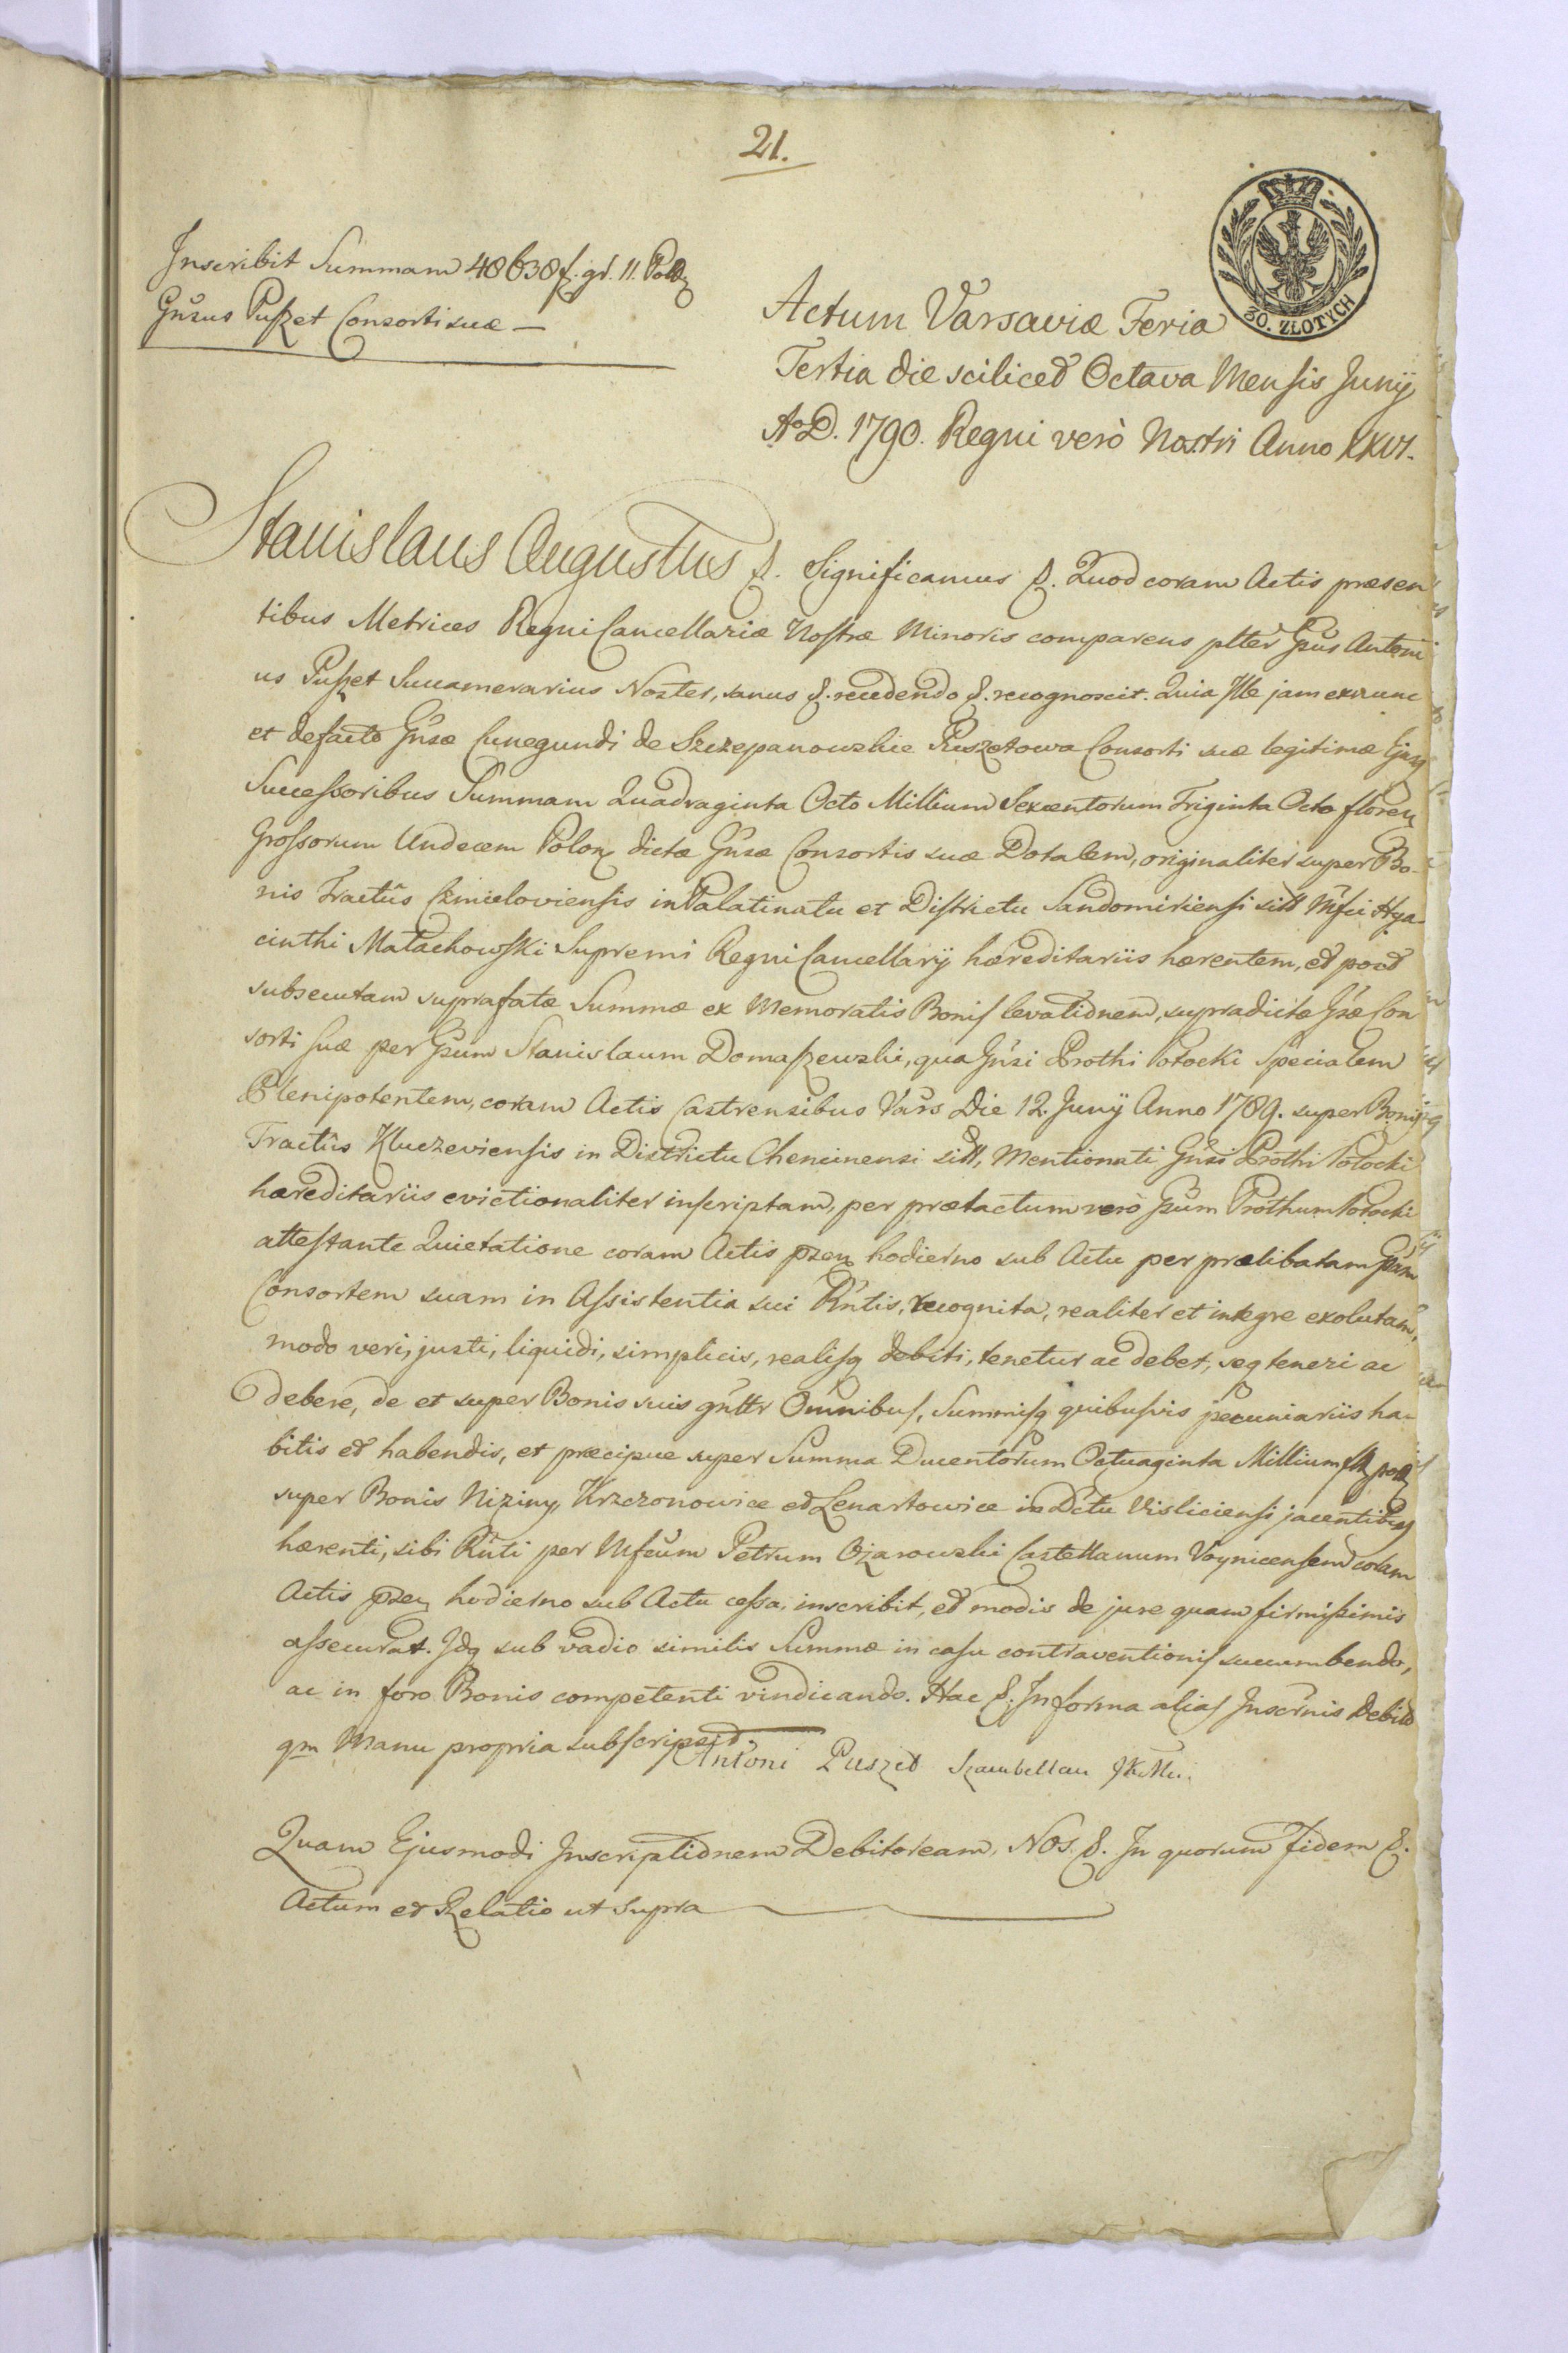 21.
30. ZŁOTYCH
Inscribit Summam 48638 f. gr. 11. Poll
Gnsus Puszet Consorti suæ —
Actum Varsaviæ Feria
Tertia die scilicet Octava Mensis Junÿ
Ao D. 1790. Regni verò Nostri Anno XXVI.
Stanislaus Augustus &. Significamus &. Quod coram Actis præsen
tibus Metrices Regni Cancellariæ Nostræ Minoris comparens plter Gsus Antoni
us Puszet Succamerarius Noster, sanus &. recedendo &. recognoscit. Quia Ille jam exnunc
et defacto Gnsæ Cunegundi de Szczepanowskie Puszetowa Consorti suæ legitimæ Ejusq
Successoribus Summam Quadraginta Octo Millium Sexcentorum Triginta Octo floren
Grossorum Undecem Polon dictæ Gnsæ Consortis suæ Dotalem, originaliter super Bo-
nis Tractûs Cmieloviensis in Palatinatu et Districtu Sandomiriensi sitt Mfci Hya-
cinthi Małachowski Supremi Regni Cancellarÿ hæreditariis hærentem, et post
subsecutam suprafatæ Summæ ex Memoratis Bonis levationem, supradictæ Gsæ Con
sorti suæ per Gsum Stanislaum Domaszewski, qua Gnsi Prothi Potocki Specialem
Plenipotentem, coram Actis Castrensibus Vars Die 12. Junÿ Anno 1789. super Bonis
Tractûs Kluczeviensis in Districtu Chencinensi sitt, Mentionati Gnsi Prothi Potocki
hæreditariis evictionaliter inscriptam, per prætactum verò Gsum Prothum Potocki
attestante Quietatione coram Actis psen hodierno sub Actu per prælibatam Gsam
Consortem suam in Assistentia sui Rntis, recognita, realiter et integre exolutam,
modo veri, justi, liquidi, simplicis, realisq debiti, tenetur ac debet, seq teneri ac
debere, de et super Bonis suis gnltr Omnibus, Summisq quibusvis pecuniariis ha-
bitis et habendis, et præcipue super Summa Ducentorum Octuaginta Millium flr poll
super Bonis Niziny, Krzczonowice et Lenartowice in Dctu Visliciensi jacentibus
hærenti, sibi Rnti per Mfcum Petrum Ożarowski Castellanum Voynicensem coram
Actis psen hodierno sub Actu cessa, inscribit, et modis de jure quam firmissimis
assecurat. Idq sub vadio similis Summæ in casu contraventionis succumbendo,
ac in foro Bonis competenti vindicando. Hac &. In forma alias Inscrnis Debito
qm Manu propria subscripsit.
Antoni Puszet Szambellan JKMci.
Quam Ejusmodi Inscriptionem Debitoream, NOS &. In quorum fidem &.
Actum et Relatio ut supra